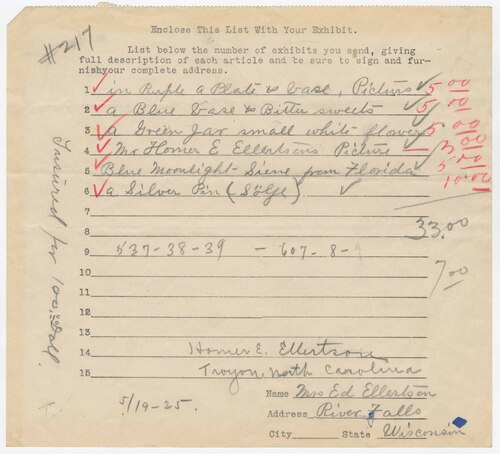 #217
Enclose This List With Your Exhibit.
List below the number of exhibits you send, giving
full description of each article and be sure to sign and fur-
nishyour complete address.
1 in Purple a Plate & Vase, Picture 5.00
2 a Blue Vase & Bitter sweets 5.00
3 a Green Jar small white flowers 5.00
4 Mr Homer E Ellertsens Picture 3.00
5 Blue Moonlight - Siene from Florida 5.00
6 a Silver Pin (Sölje) 10.00
7
8 33.00
9 537-38-39 - 607-8-9
10 7.00
11
12
13
14 Homer E. Ellertson
15 Troyon, North Carolina
Name Mrs Ed Ellertson
Address River Falls
City State Wisconsin
5/19-25.
Insured for 100, Doll.